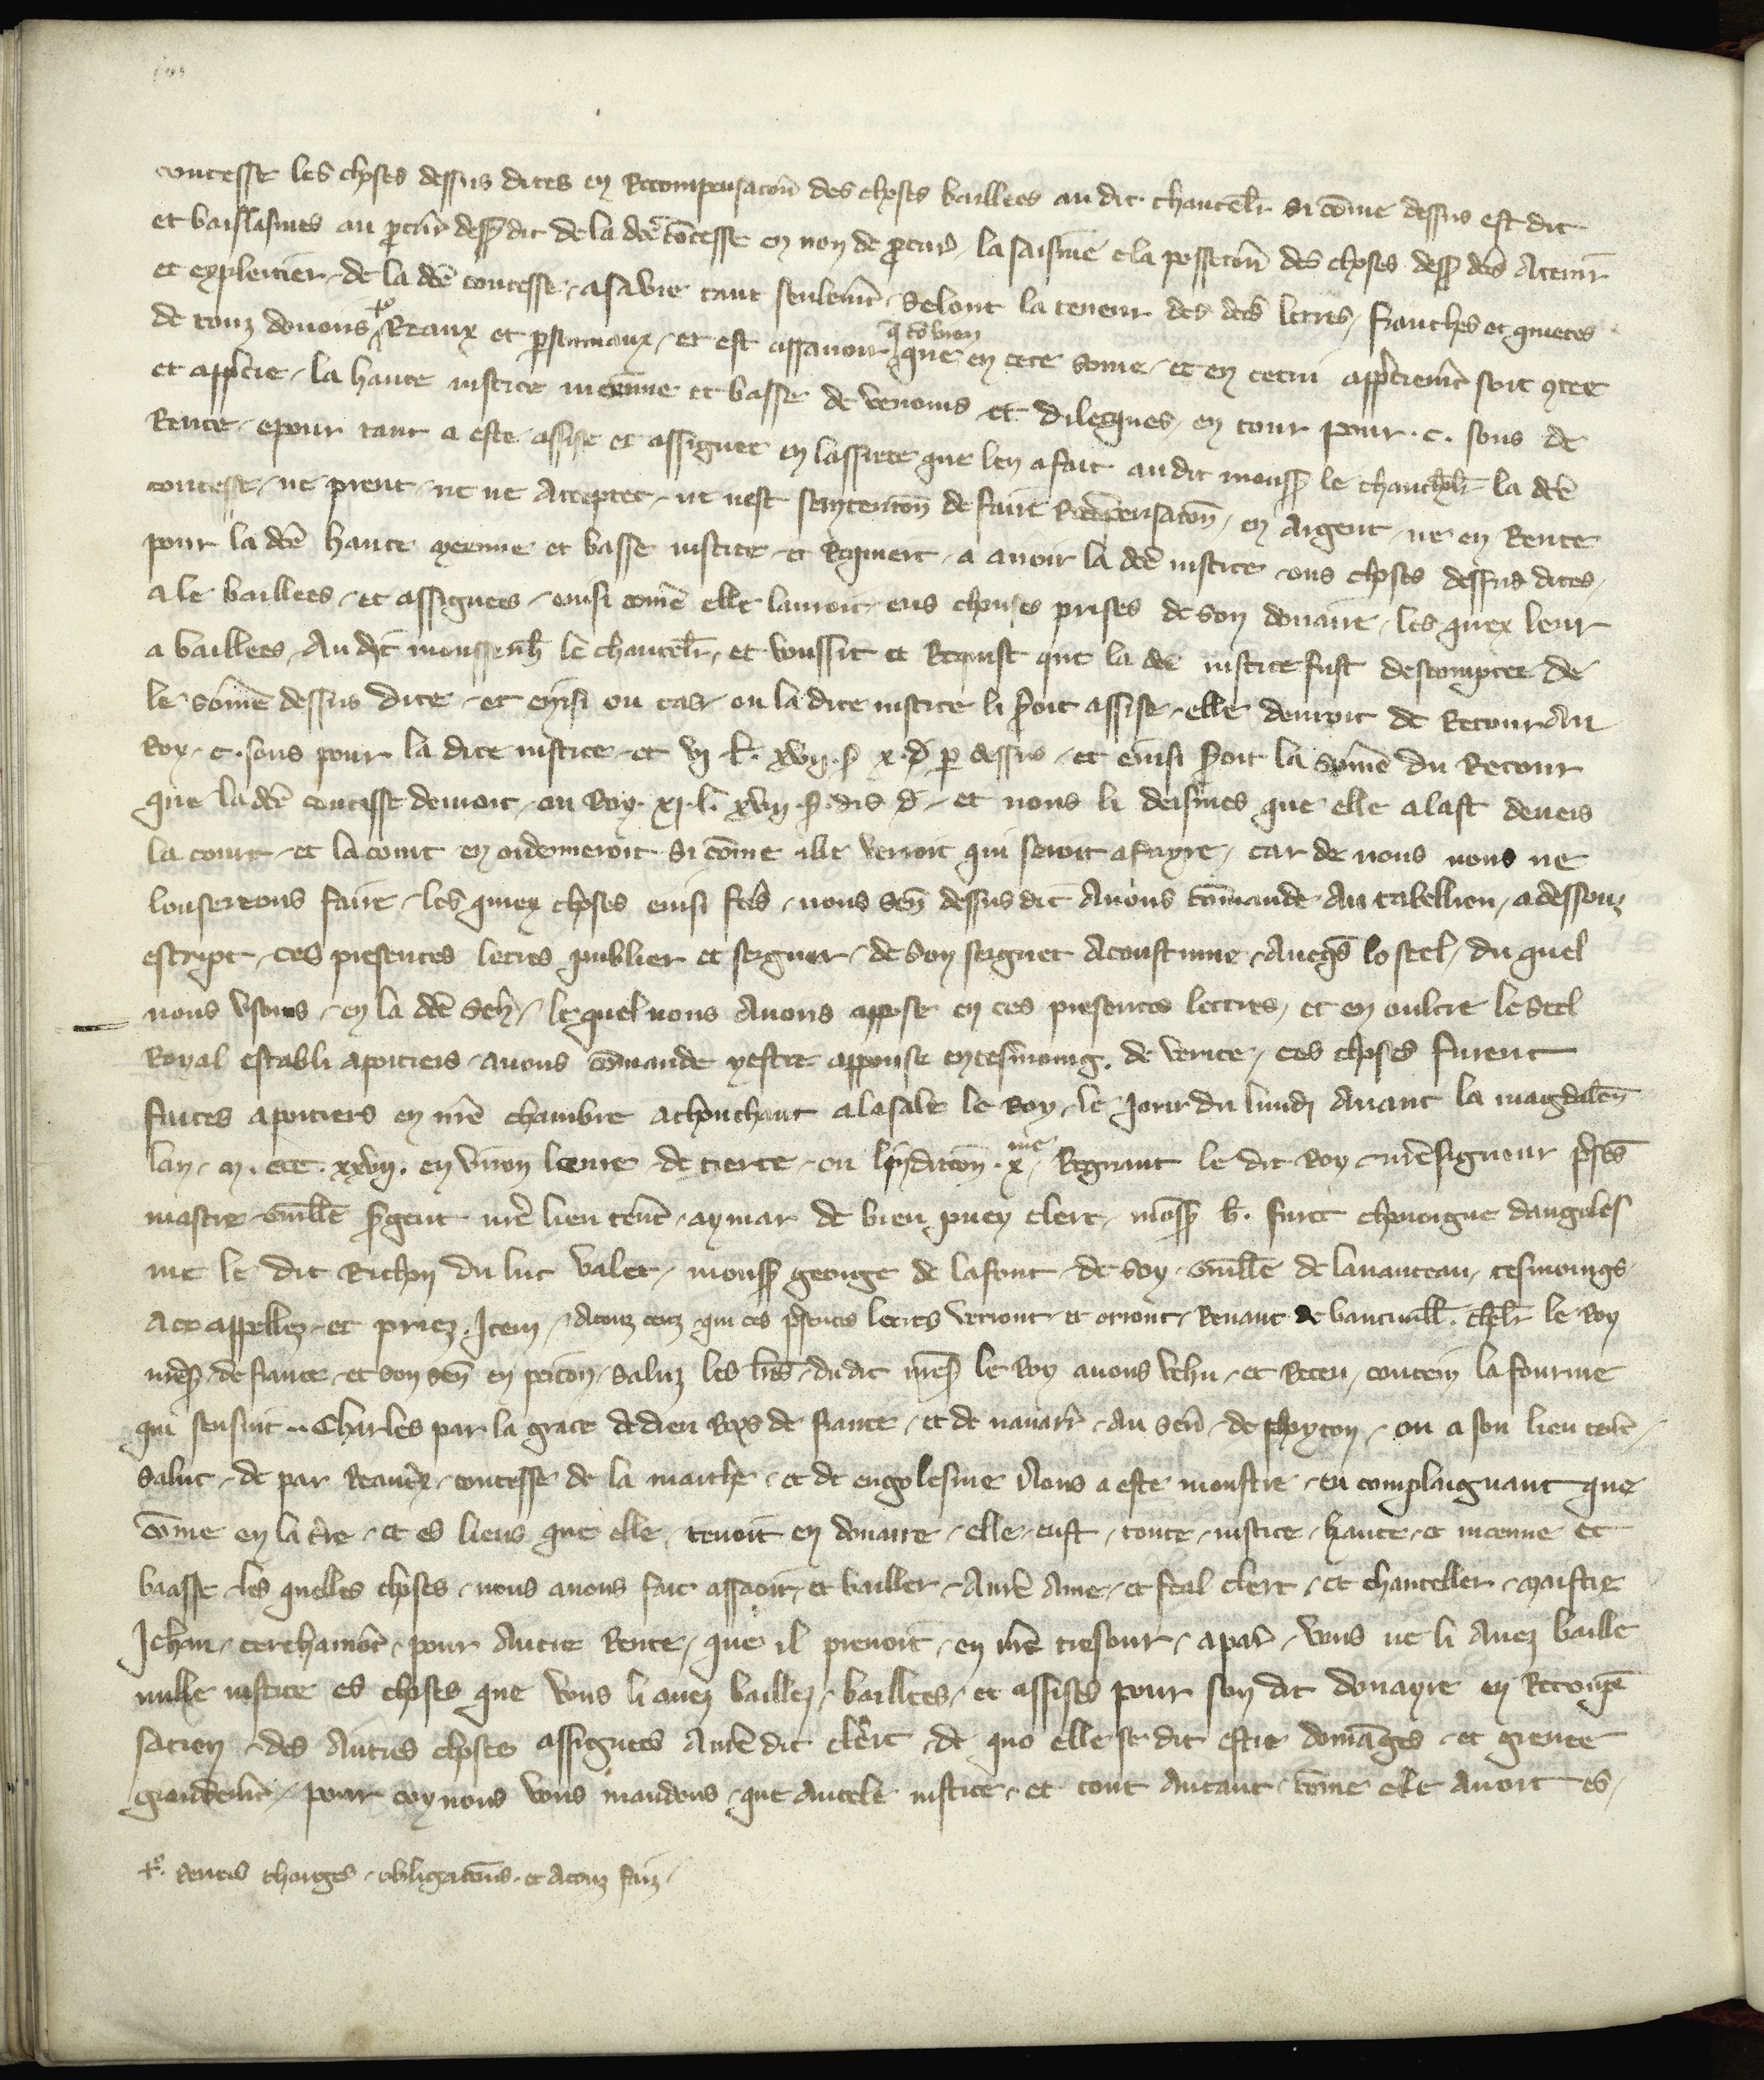 contesse les choses dessus dites en recompensacon̄ des choses baillees au dit chancel̄r si cōme dessus est dit
et baillasmes au pcur̄ dess dit de la dcē cōtesse en non de pcur̄ la saisine e la possecion̄ des choses dess dcēs a tenir
et expleitier de la dcē contesse a sa vie tant seulemēt selont la teneur des dcēs lettres franches et quictes
de touz devoirs reaux et psonnaux et est assavoir que en cete some et en cetui app̄ciemēt soit 9tee
q cōbien
et app̄ciee la haute iustice meenne et basse de venours et dilecques en tour pour .c. sous de
rente e pour tant a este assise et assignee en lassiete que len a fait au dit mons̄ le chancel̄r la dcē
contesse ne prent ne ne accepter ne nest sentencion̄ de faire recōpensacon̄ en argent ne en rente
pour la dcē haute meenne et basse iustice et requiert a avoir la dcē iustice ens choses dessus dites
a le baillees et assignees einsi comē elle lavoit ens choses prises de son douaire les quex leur
a baillees au dit monssen̄h le chancel̄r et voussit et requist que la dcē iustice fust descomptee de
le somē dessus dite et einsi ou cas ou la dite iustice li s̄oit assise elle devroit de retour au
roy .c. sous pour la dite iustice et vj l̄. xvij. s̄ x. d̄ p dessus et einsi s̄oit la somē du retour
que la dcē contesse devroit ou roy xj. l̄. xvij. s̄. dis d̄ et nous li deismes que elle alast devers
la court et la court en ordenneroit si cōme ille verroit qui seroit a fayre car de nous nous ne
louserions faire les quiex choses einsi fcēs nous sen̄ dessus dit avons cōmande au tabellion a dessouz
escript ces presentes lettres publier et seigner de son seignet acoustume aveqs lo seel du quel
nous usons en la dcē seh le quel nous avons appose en ces presentes lettres et en oultre le seel
royal establi a poitiers avons cōmande y estre appouse en tesmoing. de verite ces choses furent
faites a poitiers en nr̄e chambre a chouchant a la sale le roy le jour du lundi avant la magdalen̄
lan .m. ccc. xxvij. en viron leure de tierce en lindicion̄ .x me regnant le dit roy nr̄e signeur p̄ses
mastre guillē s̄gent nr̄e lieu tenēt aymar de bien puey clerc mons̄ h̄. furet chonoigne dangoles
me le dit richon du luc valet mons̄ george de lafont de soy guillē de lavauceau tesmoings
a ce appellez et priez. Item a touz ceuz qui ces p̄sentes lectres verront et orront renaut de bancivill̄. chelr̄ le roy
nr̄es̄ de france et son sen̄ en peiton saluz les lr̄es du dit nr̄es̄ le roy avons vehu et receu contenēt la fourme
qui sensuit .. Charles par la grace de dieu roys de france et de navarr̄ au sen̄ de poyton ou a son lieu tenēt
salut de par beatrix contesse de la marche et de engolesme nous a este monstre en complaignant que
cōme en la tr̄e et es lieus que elle tenoit en douaire elle eust toute iustice haute et meenne et
baasse les quelles choses nous avons fait asseoir et bailler a nr̄e ame et feal clerc et chanceller maistre
Jehan cerchamōt pour autre rente que il prenoit en nr̄e tresour a par̄ vous ne li avez baille
nulle iustice es choses que vous li avez baillez baillees et assises pour son dit douayre en recōpē
sacion des autres choses assignees a nr̄e dit clerc de quo elle se dit estre domages et grevee
grandemēt pour coy nous vous mandons que autele iustice et tout autant cōme elle avoit es
devoirs charges obligacions et a touz faiz